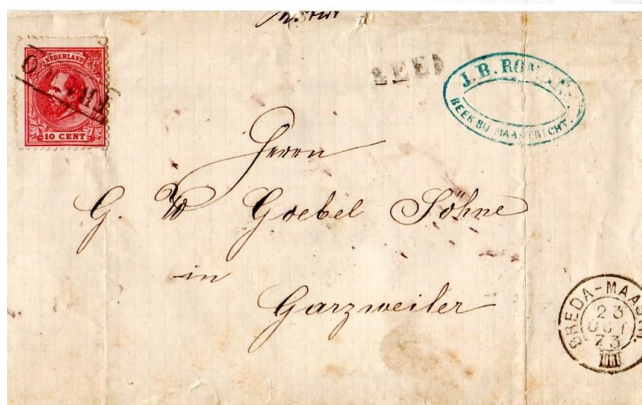 NEDERLAND
10 CENT
J. B.
BEEK BIJ MAASTRICHT
Herrn
G. W Goebel Söhne
in
Garzweiler
BREDA-MAASTR.
23
OCT
73
III